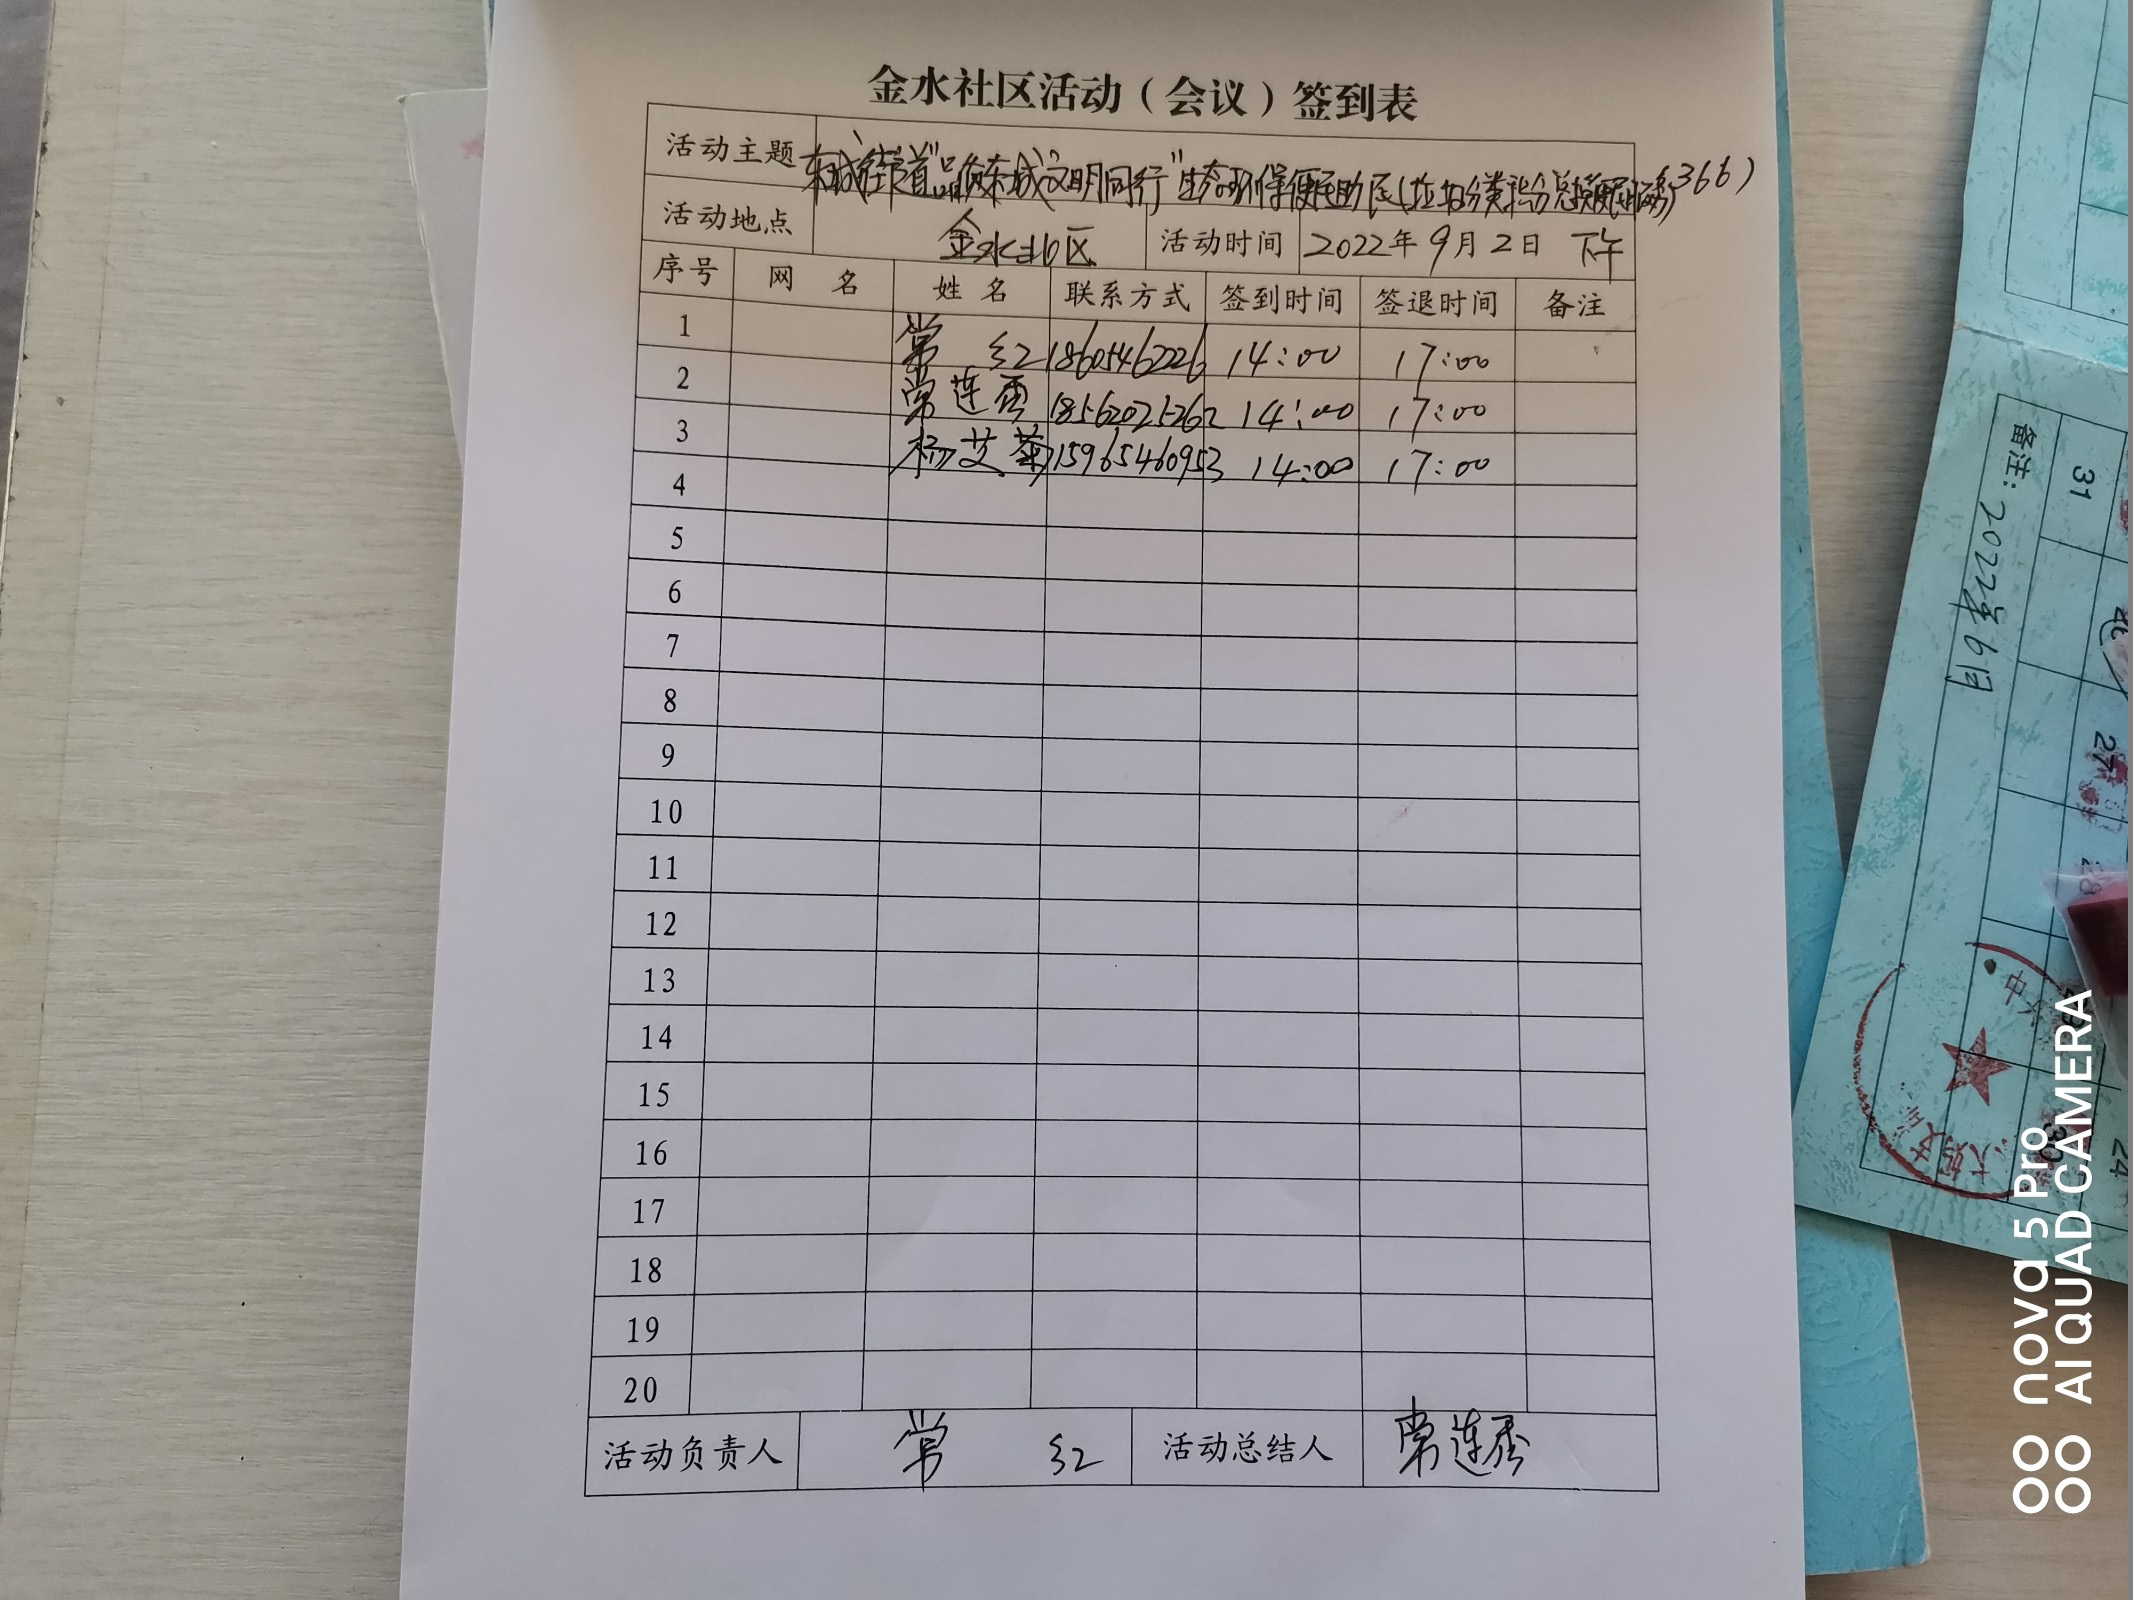 金水社区活动（会议）签到表
活动主题 东城街道"品质东城文明同行"生态环保便民助民(垃圾分类积分总换便民服务366)
活动地点 金水社区 活动时间 2022年9月2日 下午
序号 网名 姓名 联系方式 签到时间 签退时间 备注
1 常红 18605462226 14:00 17:00
2 常连秀 18562021262 14:00 17:00
3 杨艾菊 15965460953 14:00 17:00
4
5
6
7
8
9
10
11
12
13
14
15
16
17
18
19
20
活动负责人 常红 活动总结人 常连秀
备注: 2022年6月
31
27
28
30
24
nova 5 Pro
AI QUAD CAMERA